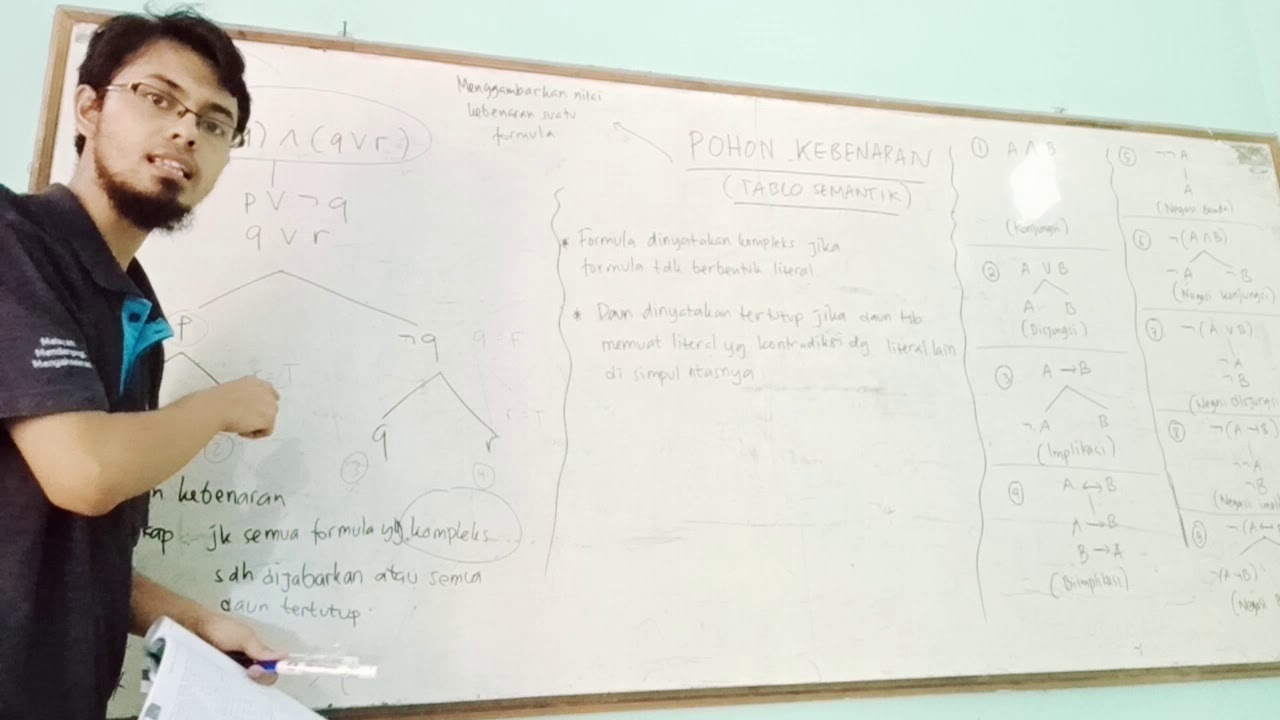 ∧ (q ∨ r)
p ∨ ¬q
q ∨ r
p
¬q q = F
= T
r = T
q r
2 3 4
kebenaran
jk semua formula yg kompleks
sdh dijabarkan atau semua
daun tertutup.
Menggambarkan nilai
kebenaran suatu
formula
POHON KEBENARAN
(TABLO SEMANTIK)
* Formula dinyatakan kompleks jika
formula tdk berbentuk literal
* Daun dinyatakan tertutup jika daun tsb
memuat literal yg kontradiksi dg literal lain
di simpul atasnya
1 A ∧ B
(Konjungsi)
2 A ∨ B
A B
(Disjungsi)
3 A → B
¬A B
(Implikasi)
4 A ↔ B
A → B
B → A
(Biimplikasi)
5 ¬¬A
A
(Negasi Ganda)
6 ¬(A ∧ B)
¬A ¬B
(Negasi konjungsi)
7 ¬(A ∨ B)
¬A
¬B
(Negasi disjungsi
8 ¬(A → B)
¬B
(Negasi
¬(A ↔
(Negasi